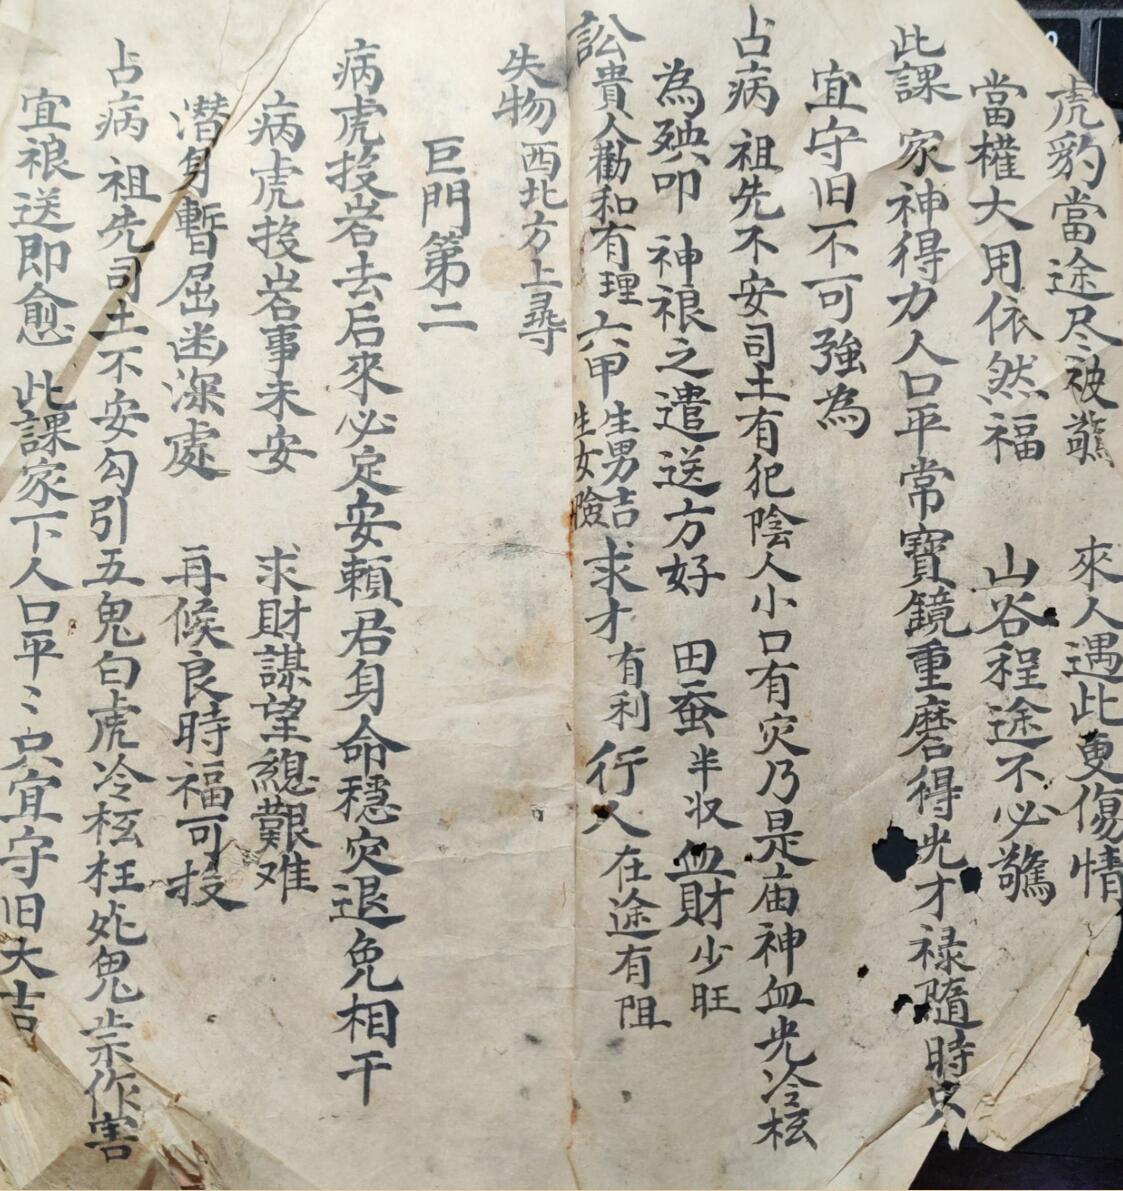 虎豹當途尽被驚 來人遇此更傷情
當權大用依然福 山谷程途不必驚
此課 家神得力人口平常寶鏡重磨得光才禄隨時只
宜守旧不可強為
占病 祖先不安司土有犯陰人小口有灾乃是庙神血光冷枟
為殃叩 神禳之遣送方好 田蚕半收血財少旺
訟貴人勸和有理六甲生男吉生女險求才有利行人在途有阻
失物西北方上尋
巨門第二
病虎投岩去后來必定安賴君身命穩灾退免相干
病虎投岩事未安 求財謀望總艱难
潜身暫屈幽深處 再候良時福可投
占病 祖先司土不安勾引五鬼白虎冷枟枉死鬼祟作害
宜禳送即愈 此課家下人口平〻只宜守旧大吉